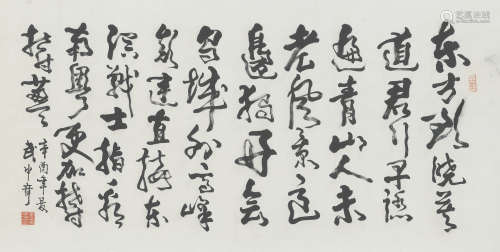 东方欲晓莫
道君行早踏
遍青山人未
老风景这
邊独好会
昌城外高峰
颠連直接东
溟战士指看
南粤更加鬱
鬱葱々
辛酉年夏
武中奇